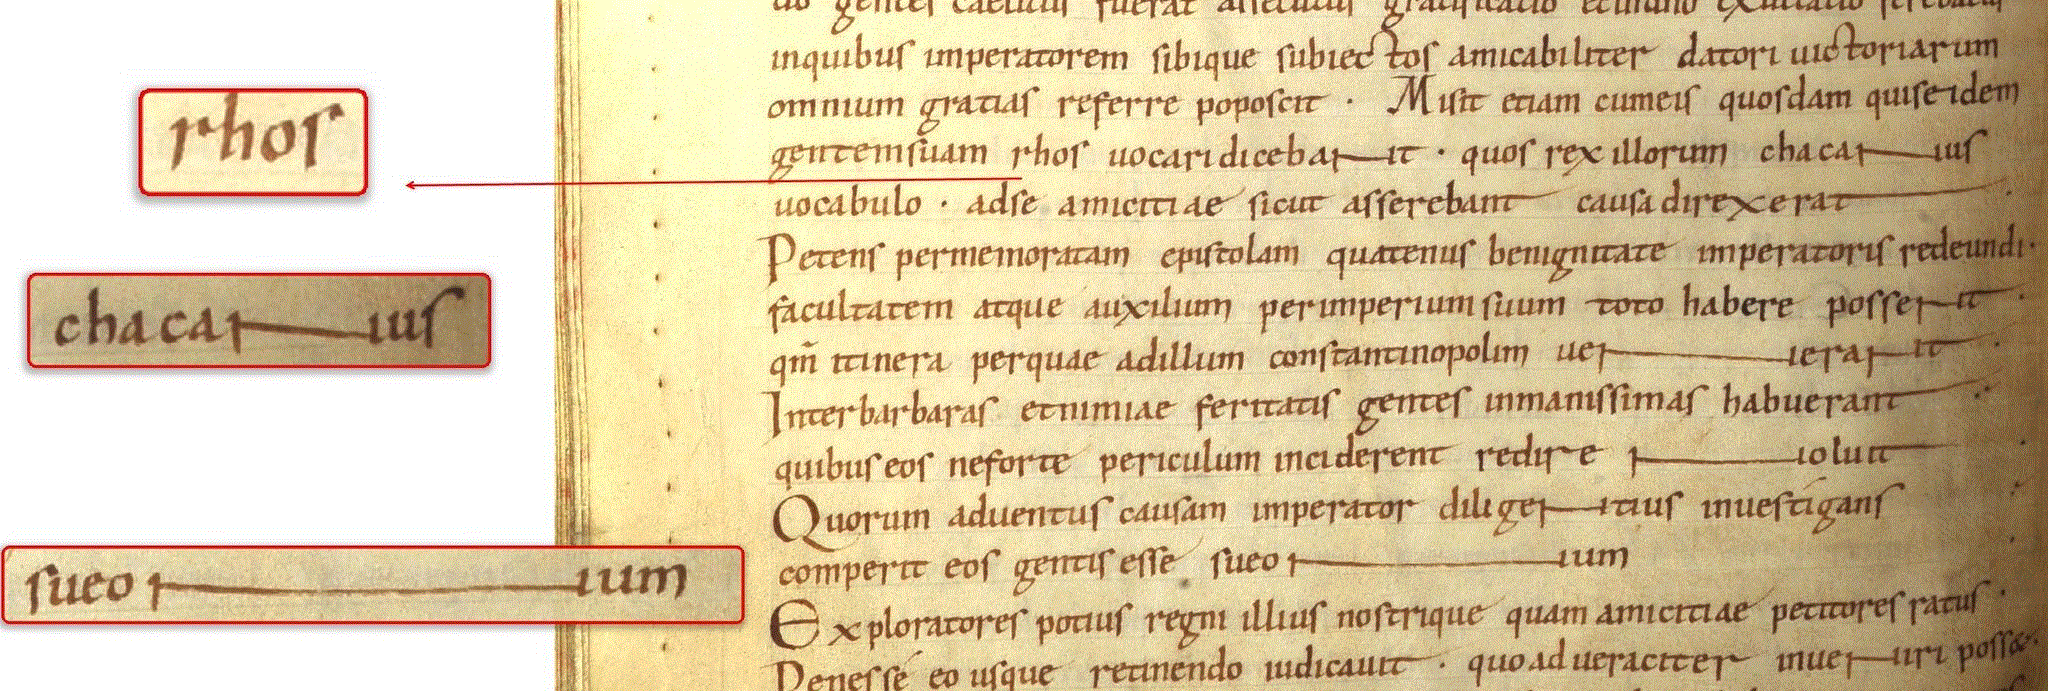 rhos
chacanus
sueonum
gentes fuerat
inquibus imperatorem sibique subiectos amicabiliter datori uictoriarum
omnium gratias referre poposcit · Misit etiam cumeis quosdam quiseidem
gentemsuam rhos uocari dicebant · quos rex illorum chacanus
uocabulo · adse amicitiae sicut asserebant causa direxerat
Petens permemoratam epistolam quatenus benignitate imperatoris redeundi·
facultatem atque auxilium perimperium suum toto habere possent ·
qm̄ itinera perquae adillum constantinopolim uenerant ·
Interbarbaras etnimiae feritatis gentes inmanissimas habuerant
quibus eos neforte periculum inciderent redire noluit
Quorum aduentus causam imperator diligentius inuestigans
comperit eos gentis esse sueonum
Exploratores potius regni illius nostrique quam amicitiae petitores ratus ·
Penesse eo usque retinendo iudicauit · quoad ueraciter inueniri posset